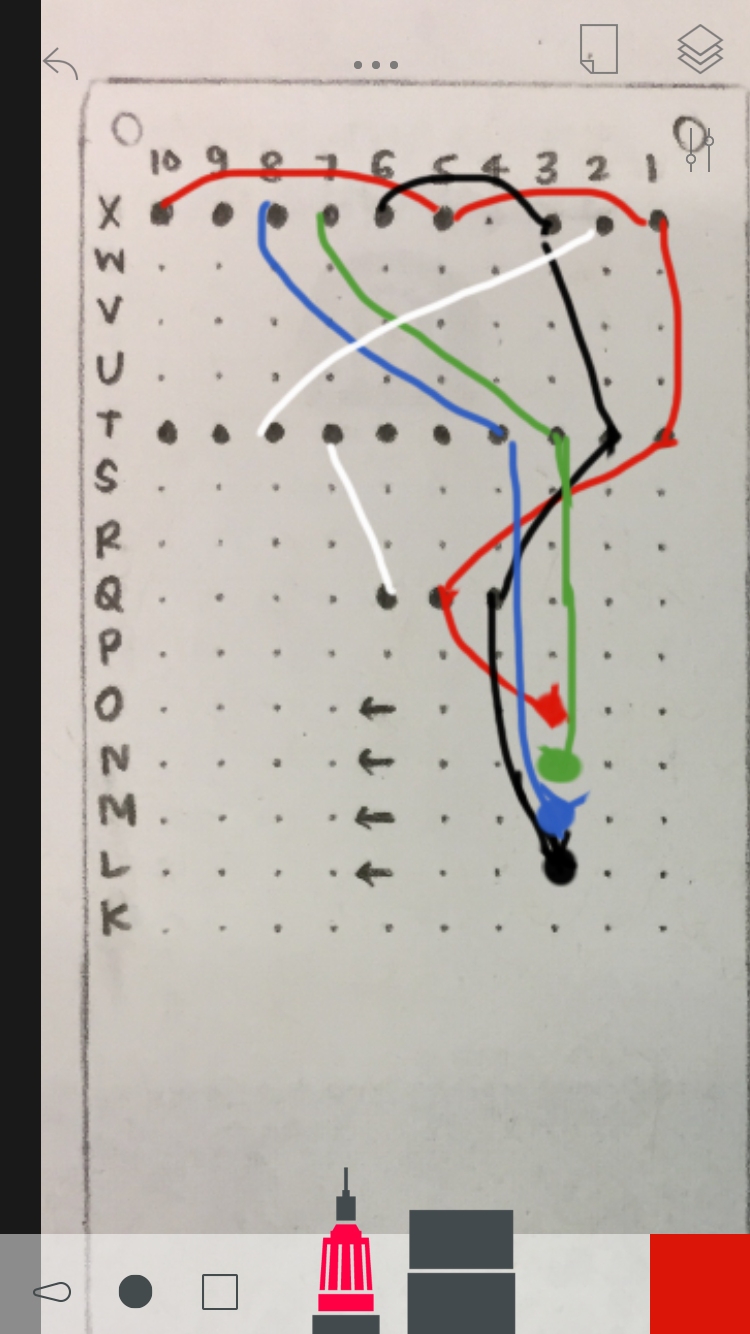 10 9 8 7 6 5 4 3 2 1
X
W
V
U
T
S
R
Q
P
O
N
M
L
K